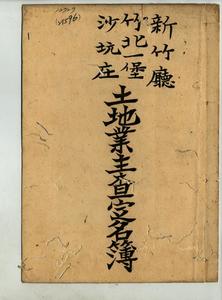 新竹廳
竹北一堡
沙坑庄
土地業主查定名簿